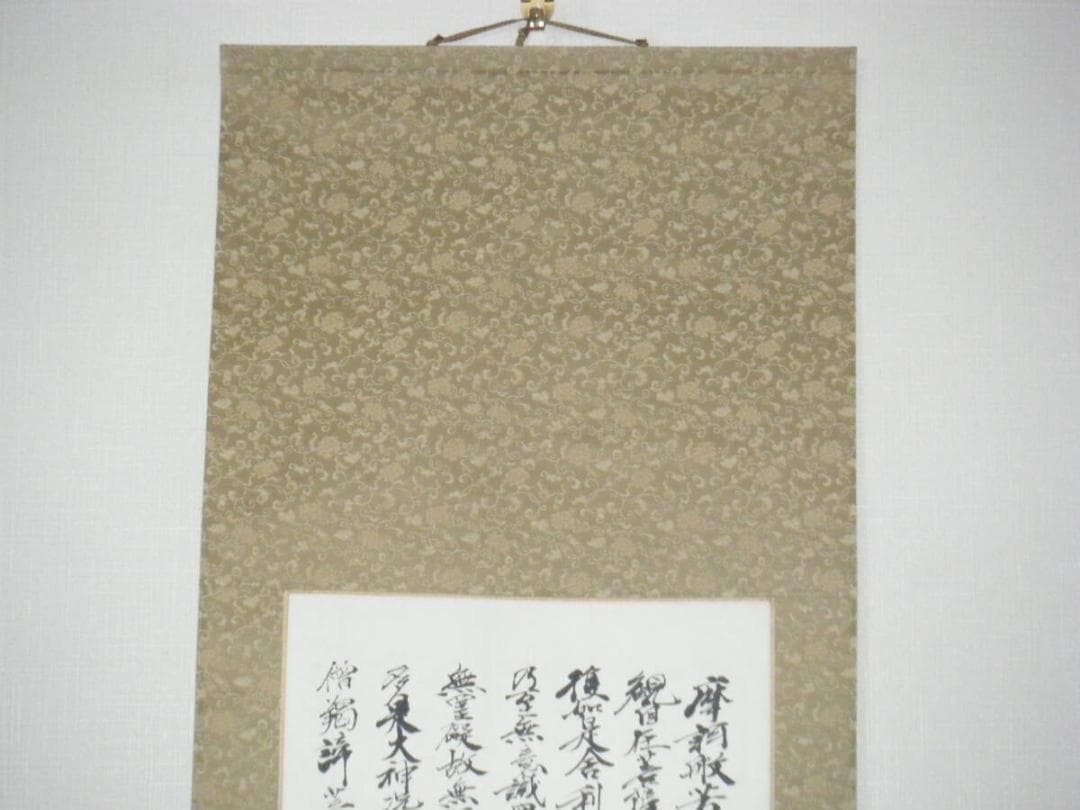 摩訶般若
観自在菩薩
復如是舎利
乃至無意識界
無罣礙故無
多是大神呪
僧羯諦菩